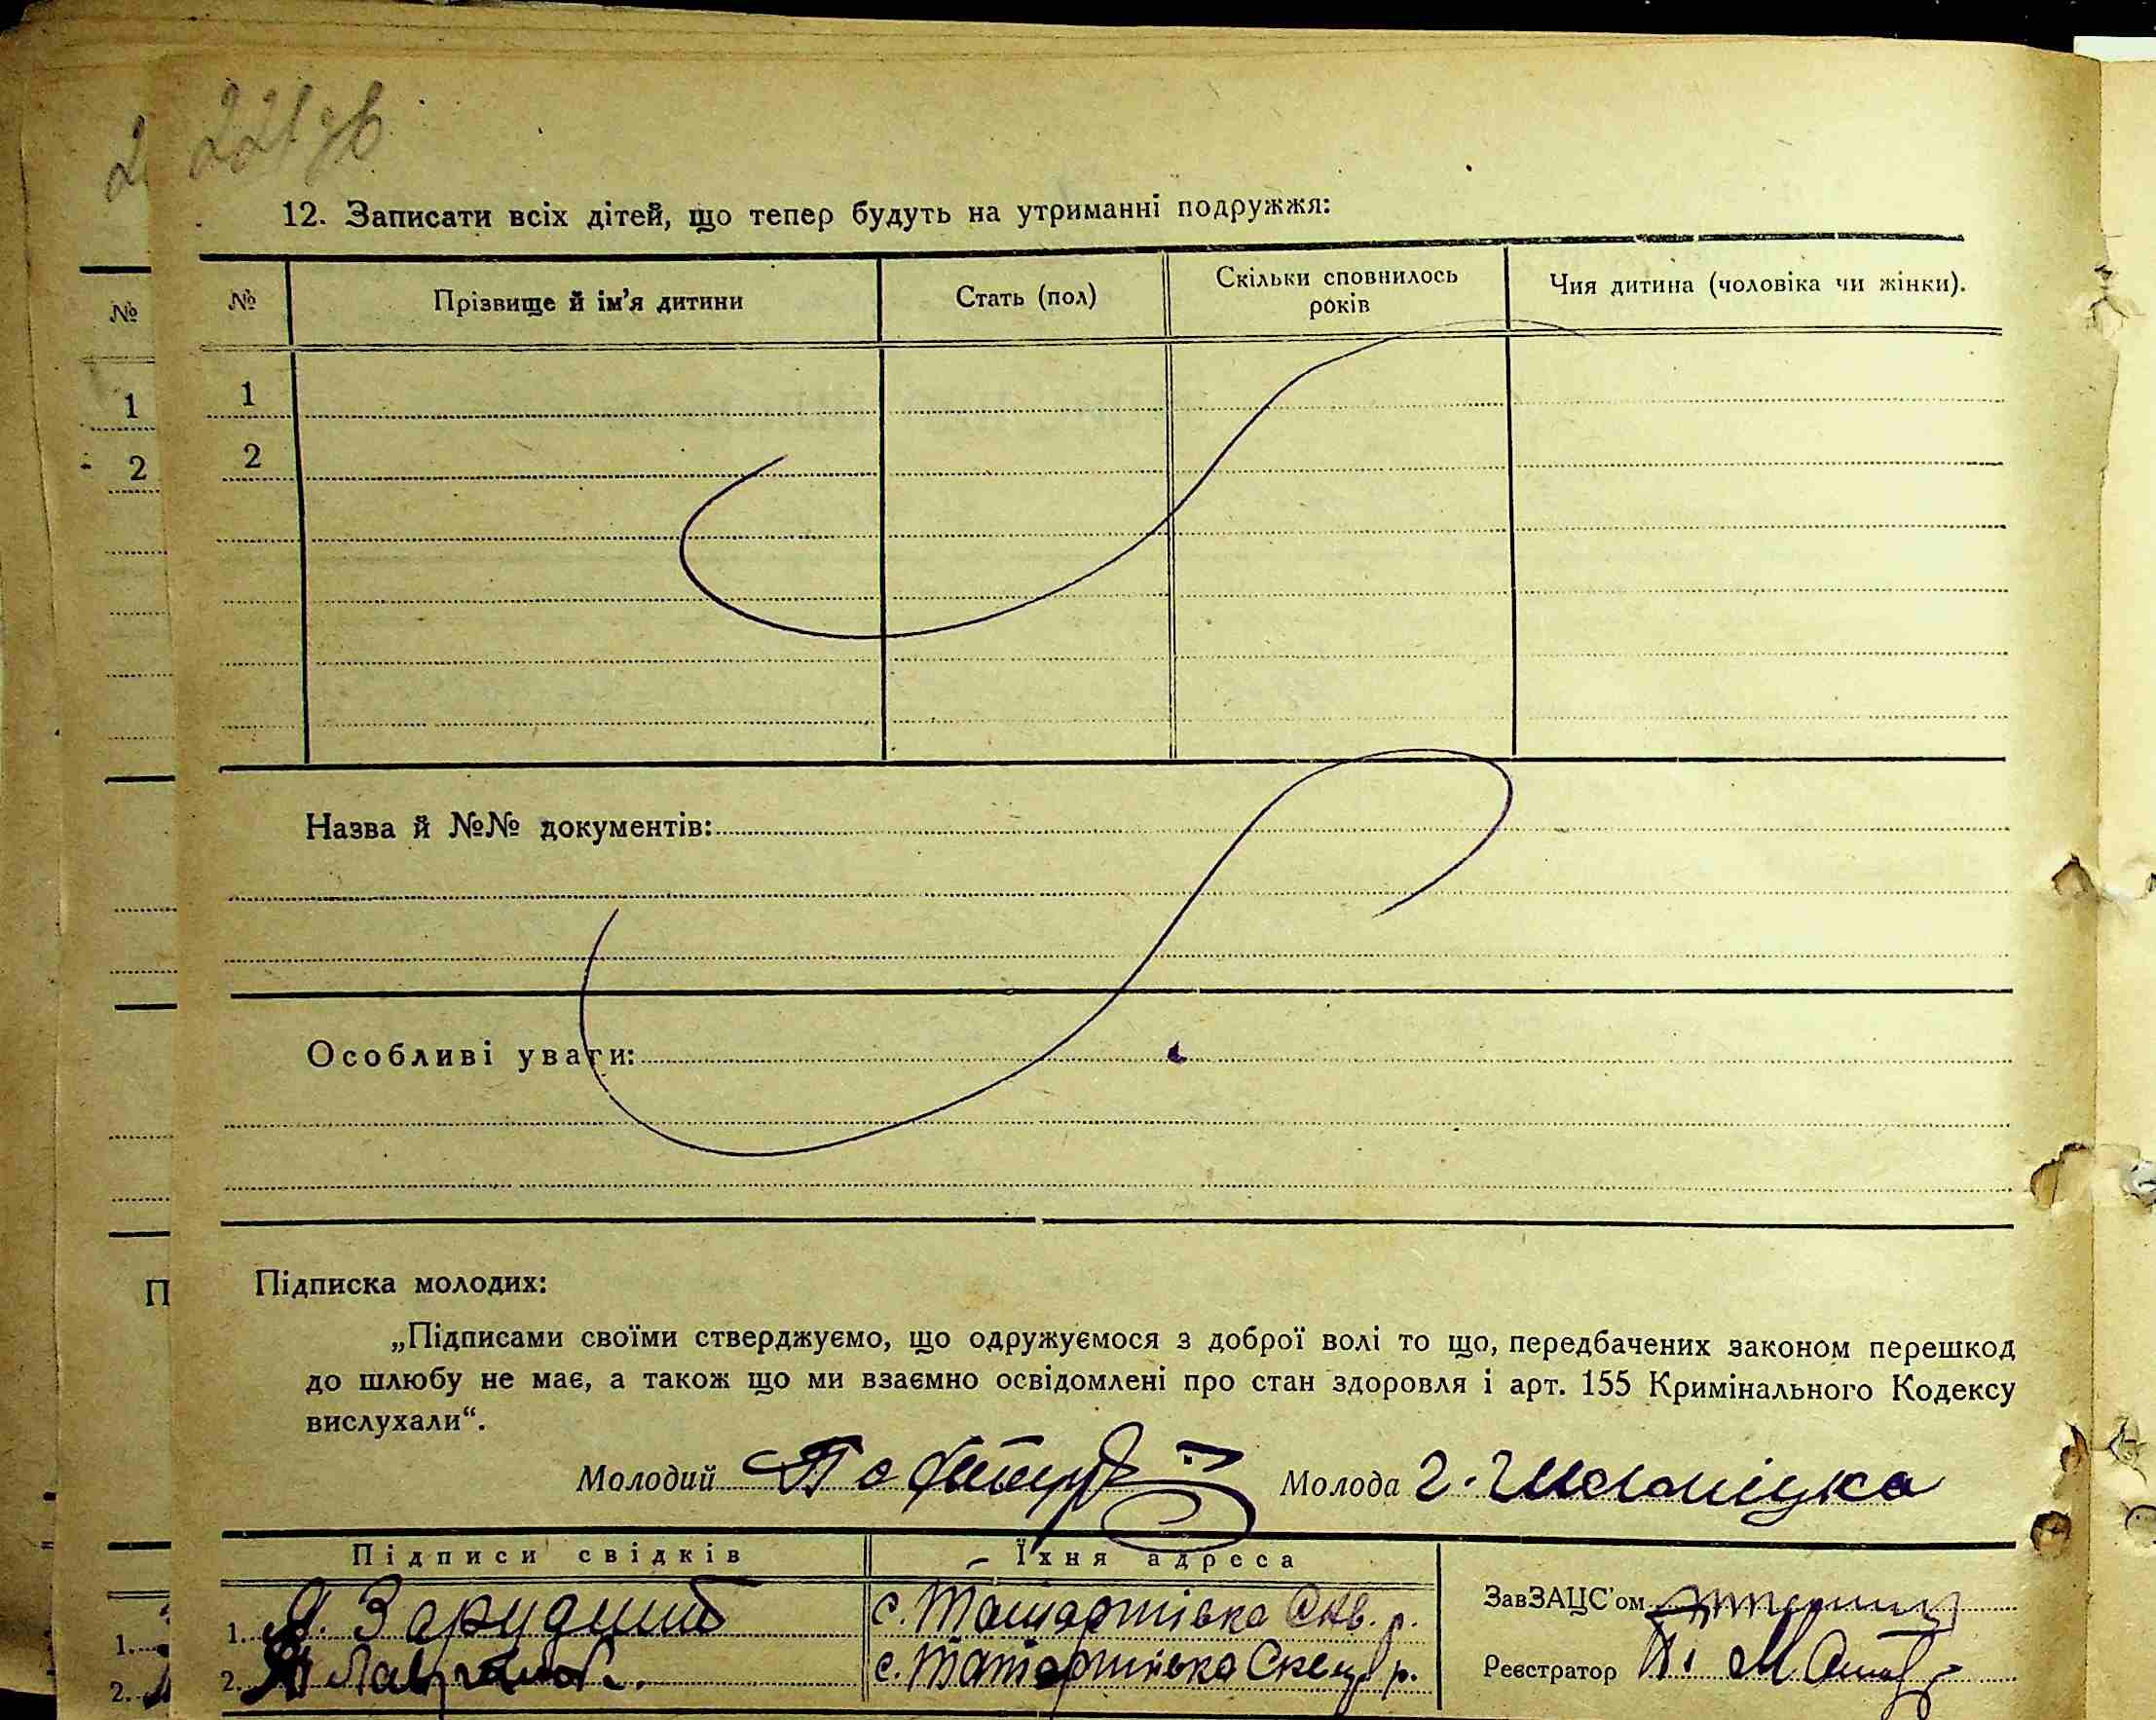 221 зв.
12. Записати всіх дітей, що тепер будуть на утриманні подружжя:
№ № Прізвище й ім’я дитини Стать (пол) Скільки сповнилось років Чия дитина (чоловіка чи жінки).
1 1
2 2
Назва й №№ документів:
Особливі уваги:
П Підписка молодих:
„Підписами своїми стверджуємо, що одружуємося з доброї волі то що, передбачених законом перешкод
до шлюбу не має, а також що ми взаємно освідомлені про стан здоровля і арт. 155 Кримінального Кодексу
вислухали“.
Молодий Молода
Підписи свідків Їхня адреса
1. 1. Зарудний с. р. ЗавЗАЦС’ом
2. 2. с. р. Реєстратор